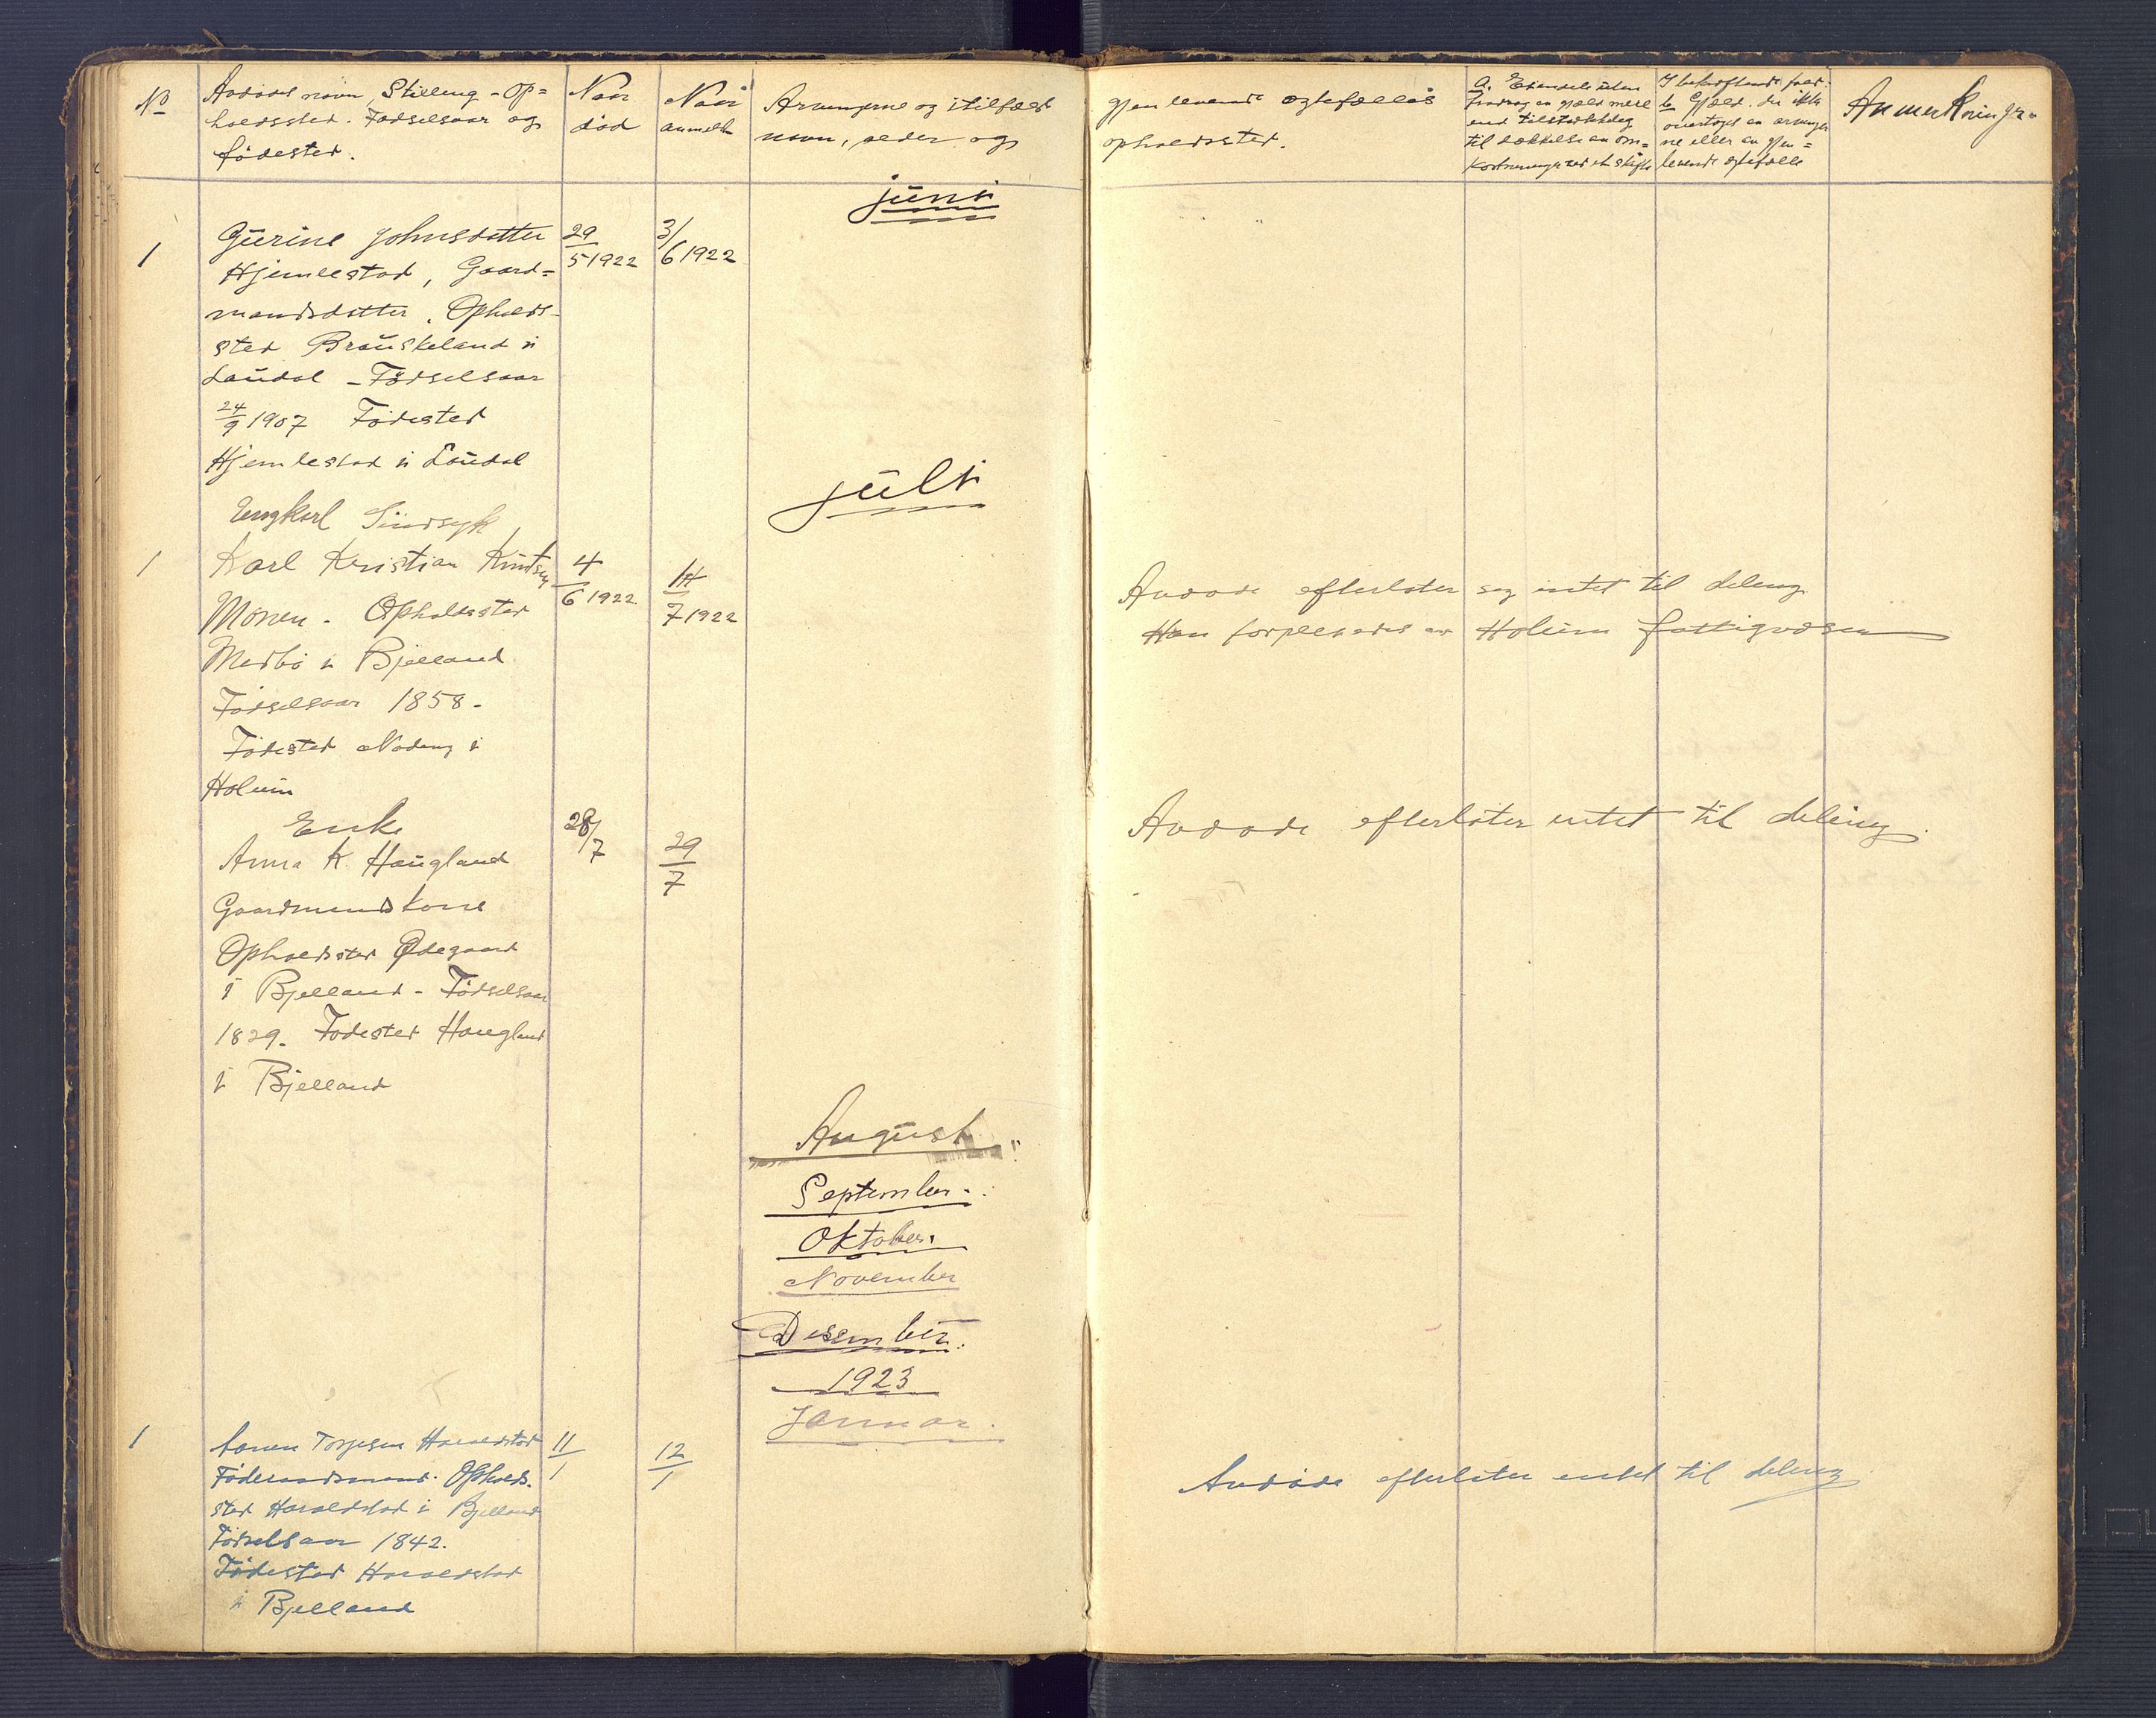 No
Avdødes navn, Stilling - Op=
holdssted. Fødselsaar og
fødested.
Naar
død
Naar
anmeldt
Arvingerne og i tilfælde
navn, alder og
gjenlevende ægtefælles
opholdssted.
a. Eiendele uten
fradrag av gjæld mere
end tilstrækkelig
til dækkelse av om=
kostninger ved et skifte
I bekræftende fald:
b. Gjæld, der ikke
overtages av arvinger
ne eller av gjen=
levende ægtefælle
Anmerkninger
juni
1
Gurine Johnsdatter
Hjemlestad, Gaard=
mandsdatter. Opholds-
sted Brauskeland i
Laudal - Fødselsaar
24/9 1907 Fødested
Hjemlestad i Laudal
29/5 1922
3/6 1922
juli
Ungkarl Sindsyk,
1
Karl Kristian Knutsen
Monen - Opholdssted
Medbø i Bjelland
Fødselsaar 1858-
Fødested Nøding i
Holum
4/6 1922
14/7 1922
Avdøde efterlater seg intet til deling
Han forpleiedes av Holum fattigvæsen
Enke
Anna K. Haugland
Gaardmandskone
Opholdssted Ødegaard
i Bjelland - Fødselsaar
1829. Fødested Haugland
i Bjelland
28/7
29/7
Avdøde efterlater intet til deling.
August
September.
Oktober.
November
Desember.
1923
Januar.
1
Aanen Torjesen Haraldstad
Føderaadsmand. Opholds.
sted Haraldstad i Bjelland
Fødselsaar 1842.
Fødested Haraldstad
i Bjelland
11/1
12/1
Avdøde efterlater intet til deling